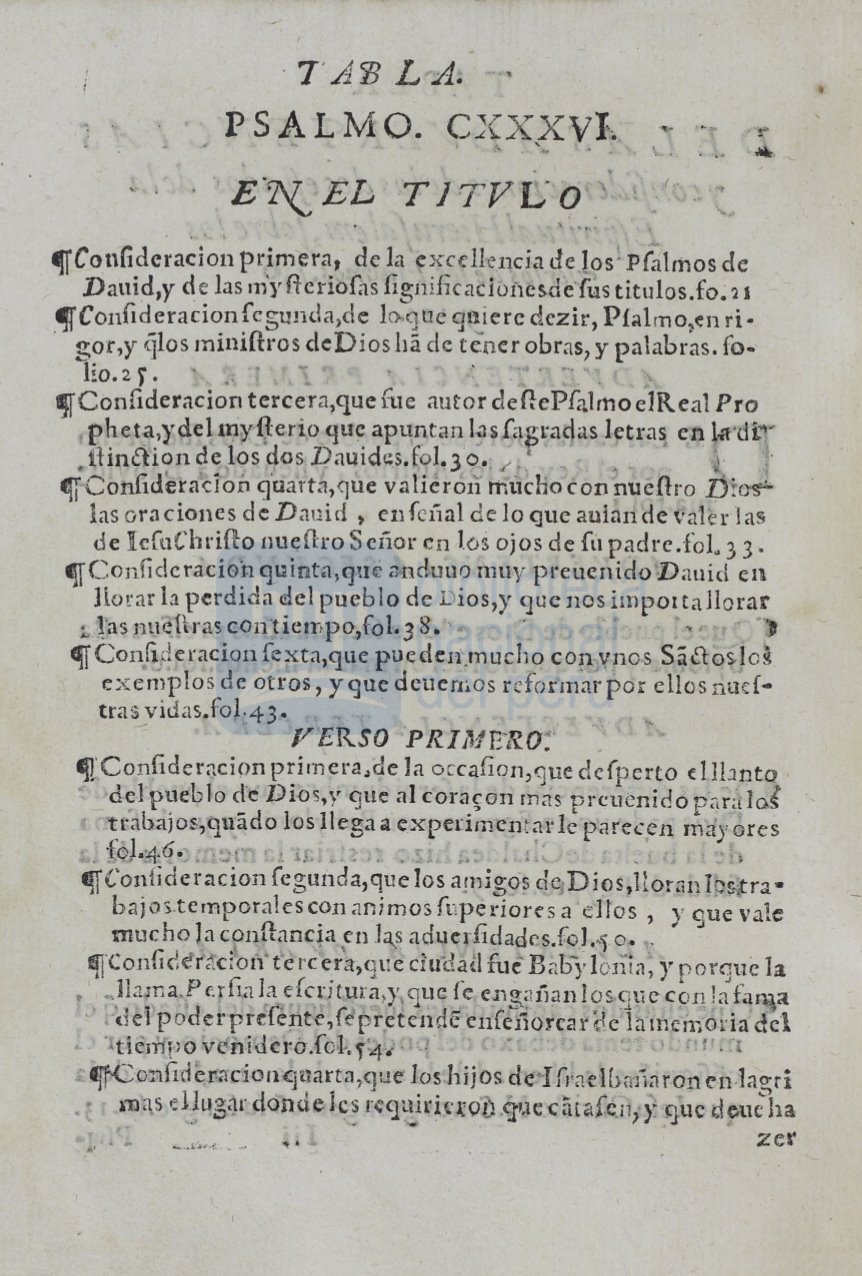 TABLA.
PSALMO. CXXXVI.
EN EL TITVLO
¶Conſideracion primera, de la excellencia de los Pſalmos de
Dauid,y de las myſterioſas ſignificaciones de ſus titulos.fo.21
¶Conſideracion ſegunda,de lo que quiere dezir, Pſalmo,en ri-
gor,y q̃los miniſtros de Dios hã de tener obras, y palabras. fo-
lio.25.
¶Conſideracion tercera,que fue autor deſte Pſalmo el Real Pro
pheta,y del myſterio que apuntan las ſagradas letras en la di-
ſtinction de los dos Dauides.fol.30.
¶Conſideracion quarta,que valieron mucho con nueſtro Dios
las oraciones de Dauid , en ſeñal de lo que auian de valer las
de Ieſu Chriſto nueſtro Señor en los ojos de ſu padre.fol.33.
¶Conſideracion quinta,que anduuo muy preuenido Dauid en
llorar la perdida del pueblo de Dios,y que nos importa llorar
las nueſtras con tiempo,fol.38.
¶Conſideracion ſexta,que pueden mucho con vnos Sãctos los
exemplos de otros, y que deuemos reformar por ellos nueſ-
tras vidas.fol.43.
VERSO PRIMERO.
¶Conſideracion primera,de la occaſion,que deſperto el llanto
del pueblo de Dios,y que al coraçon mas preuenido para los
trabajos,quãdo los llega a experimentar le parecen mayores
fol.46.
¶Conſideracion ſegunda,que los amigos de Dios,lloran los tra-
bajos temporales con animos ſuperiores a ellos , y que vale
mucho la conſtancia en las aduerſidades.fol.50.
¶Conſideracion tercera,que ciudad fue Babylonia, y porque la
llama Perſia la eſcritura,y que ſe engañan los que con la fama
del poder preſente,ſe pretendẽ enſeñorear de la memoria del
tiempo venidero.fol.54.
¶Conſideracion quarta,que los hijos de Iſrael bañaron en lagri
mas el lugar donde les requirieron que cãtaſen, y que deue ha
zer